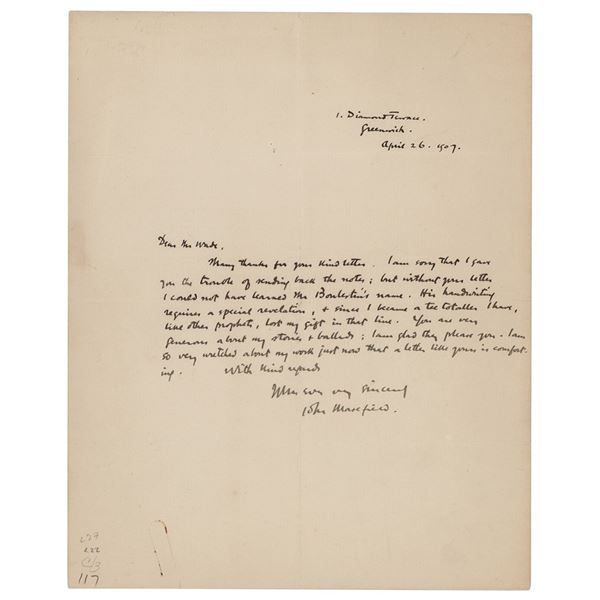 1. Diamond Terrace.
Greenwich.
April 26. 1907.
Dear Mr Wade.
Many thanks for your kind letter. I am sorry that I gave
you the trouble of sending back the notes; but without your letter
I could not have learned Mr name. His handwriting
requires a special revelation, & since I became a tee totaller I have,
like other prophets, lost my gift in that line. You are very
generous about my stories & ballads; I am glad they please you. I am
so very wretched about my work just now that a letter like yours is comfort-
ing. With kind regards
Yours very sincerely
John Masefield.
C/3
117